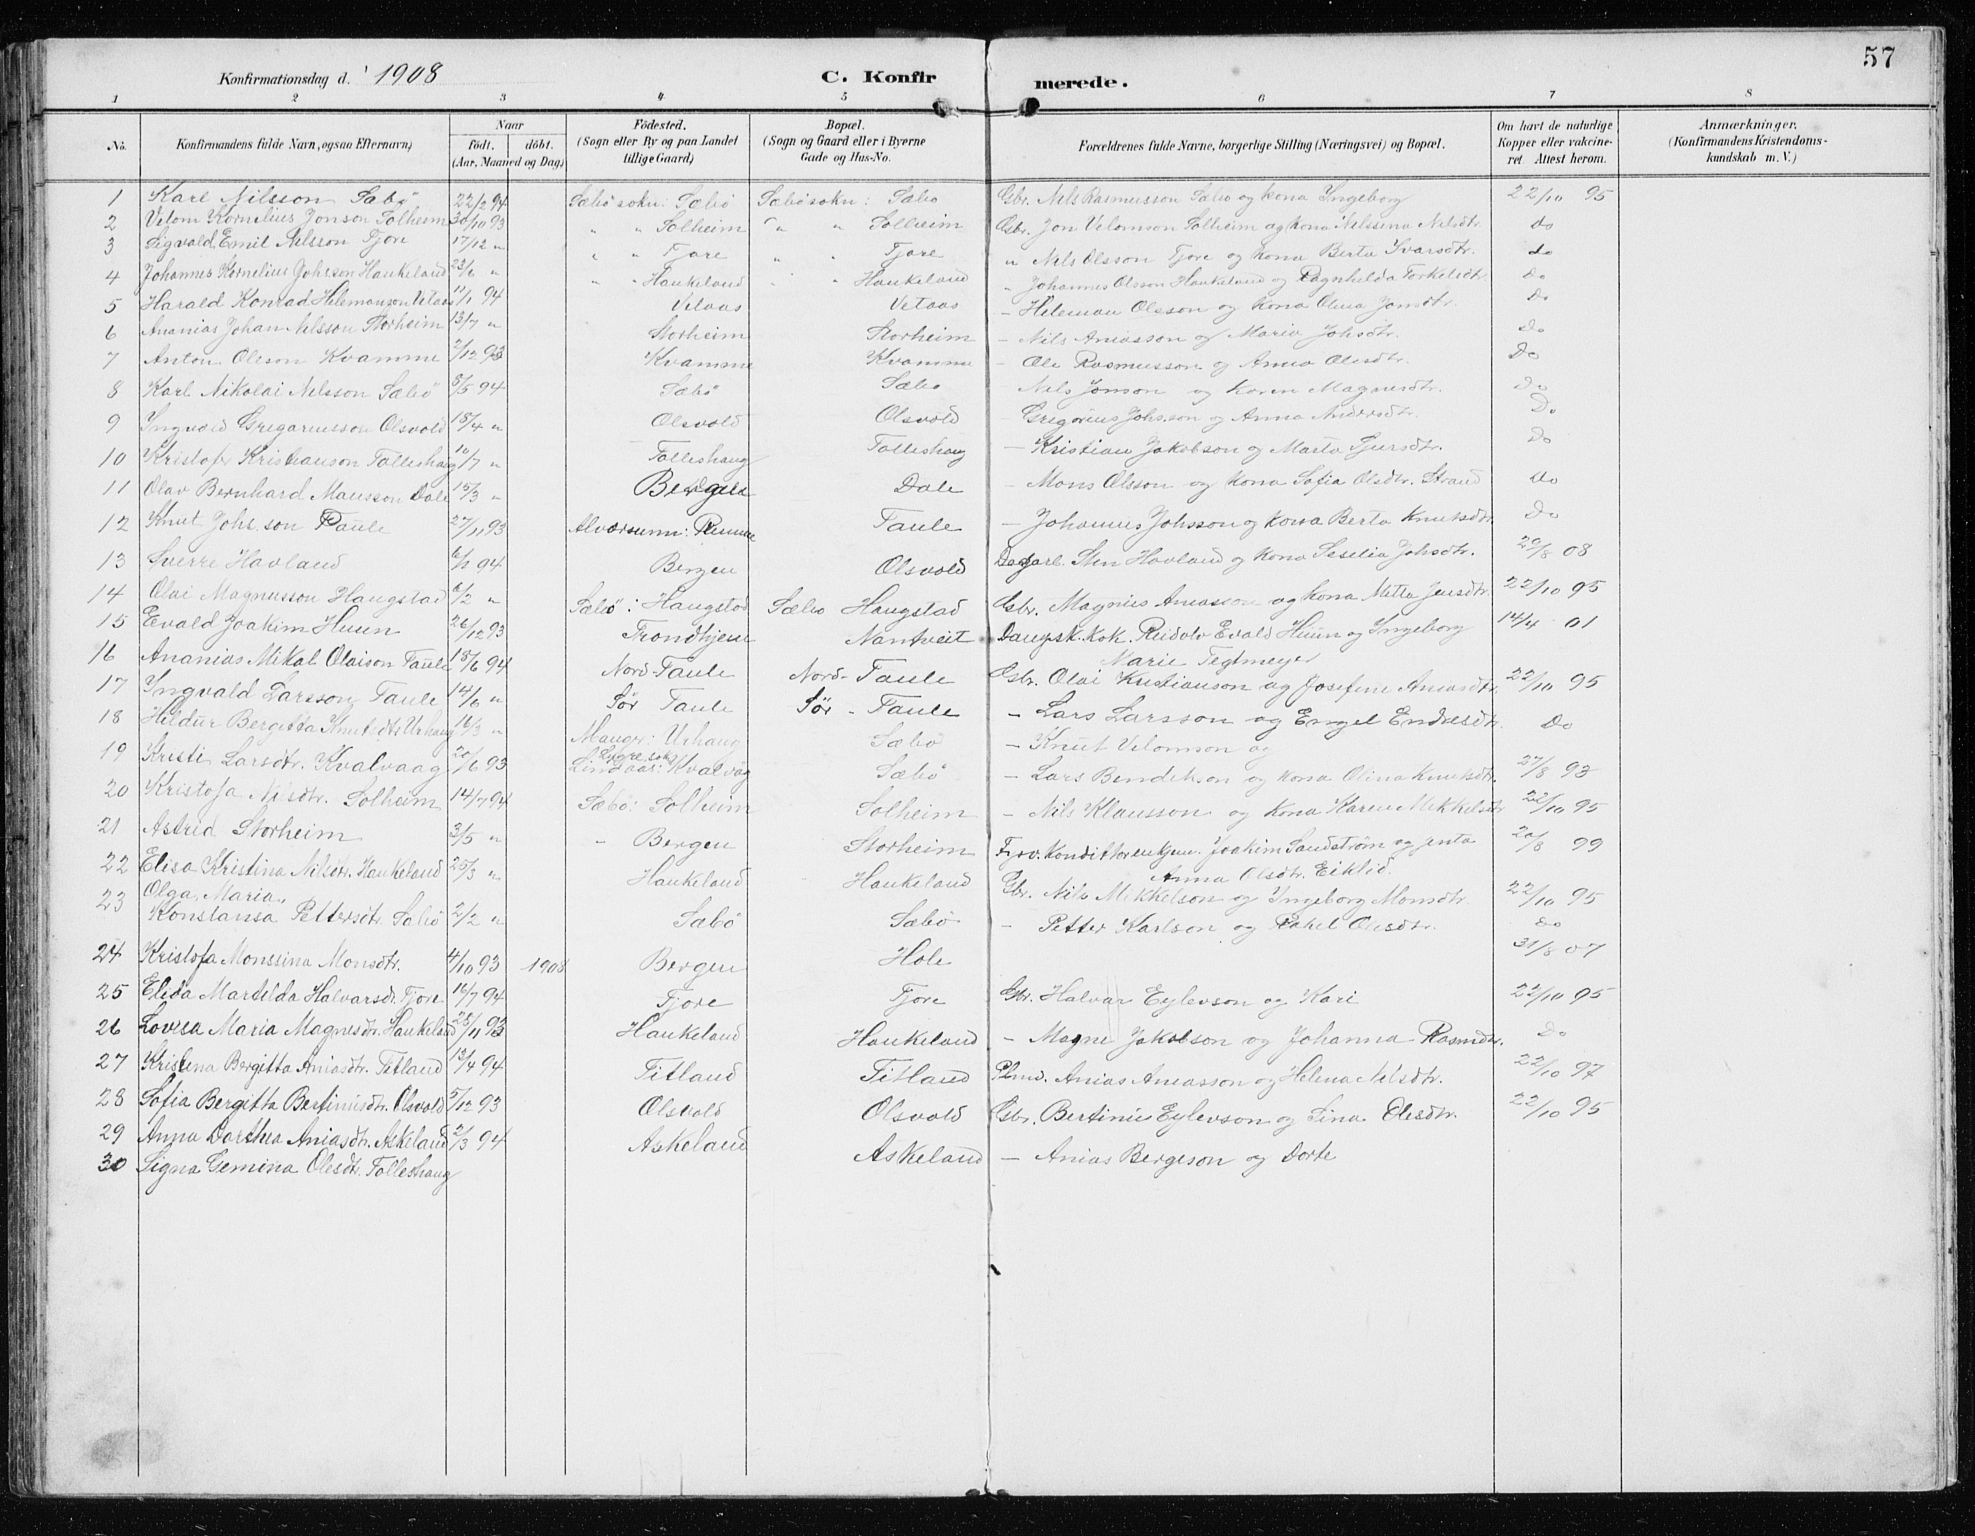 57
Konfirmationsdag d. 1908 C. Konfirmerede.
1 2 3 4 5 6 7 8
No. Konfirmandens fulde Navn, ogsaa Efternavn) Naar födt. döbt. (Aar, Maaned og Dag) Födested. (Sogn eller By og paa Landet tillige Gaard) Bopæl. (Sogn og Gaard eller i Byerne Gade og Hus-No. Forældrenes fulde Navne, borgerlige Stilling (Næringsvei) og Bopæl. Om havt de naturlige Kopper eller vakcineret. Attest herom. Anmærkninger. (Konfirmandens Kristendomskundskab m. V.)
1 Karl Nilsson Sæbö 22/2 94 Sæbö sokn: Sæbö Sæbö sokn: Sæbo Gbr. Nils Rasmusson Sæbo og kona Ingeborg 22/10 95
2 Velom Kornelius Jonson Solheim 30/10 93 " " Solheim " " Solheim Gbr. Jon Velomson Solheim og kona Nilssina Nilsdtr. do
3 Sigvald Emil Nilsson Fjore 17/12 " " " Fjore " " Fjore " Nils Olsson Fjore og kona Berta Ivarsdtr. do
4 Johannes Kornelius Johsson Haukeland 23/6 " " " Haukeland " " Haukeland " Johannes Olsson Haukeland og Ragnhilda Torkelsdtr. Do
5 Harald Konrad Helemanson Vetaas 11/1 94 Vetaas Vetaas - Heleman Olsson og kona Olina Jonsdtr. Do
6 Ananias Johan Nilsson Storheim 13/7 " Storheim Storheim - Nils Aneasson og Maria Johsdtr. Do
7 Anton Olsson Kvamme 2/12 93 Kvamme Kvamme - Ole Rasmusson og Anna Olesdtr. Do
8 Karl Nikolai Nilsson Sæbö 8/5 94 Sæbö Sæbo - Nils Jonson og Karen Magnesdtr. Do
9 Ingvald Gregoriusson Olsvold 18/4 " Olsvold Olsvold - Gregorius Johsson og Anna Andersdtr. Do
10 Kristofer Kristianson Tolleshaug 10/7 " Tolleshaug Tolleshaug - Kristian Jakobson og Marta Sjursdtr. Do
11 Olav Bernhard Mansson Dale 15/3 " Bergen Dale - Mons Olsson og kona Sofia Olsdtr. Strand Do
12 Knut Johsson Taule 27/11 93 Alværsunn: Taule - Johannes Johsson og kona Berta Knutsdtr. Do
13 Sverre Havland 6/1 94 Bergen Olsvold Sten Havland og kona Seselia Johsdtr. 20/8 08
14 Olai Magnusson Haugstad 6/2 " Sæbö: Haugstad Sæbo Haugstad Gbr. Magnus Aneasson og kona Metta Jensdtr. 22/10 95
15 Evald Joakim Huun 26/12 93 Trondhjem Nantveit Dampsk.kok. Reidolv Evald Huun og Ingeborg Marie Tegtmeyer 14/4 01
16 Ananias Mikal Olaison Taule 18/6 94 Nord-Taule Nord-Taule Gbr. Olai Kristianson og Josefine Aneasdtr. 22/10 95
17 Ingvald Larsson Taule 14/6 " Sør Taule Sør - Taule - Lars Larsson og Engel Endresdtr. Do
18 Hildur Bergitta Knutsdtr Urhaug 16/3 " Manger: Urhaug Sæbö - Knut Velomson og
19 Kristi Larsdtr. Kvalvaag 20/6 93 Lindaas: Kvalvåg Sæbö - Lars Bendikson og kona Olina Knutsdtr. 27/8 93
20 Kristofa Nilsdtr. Solheim 14/7 94 Sæbö: Solheim Solheim - Nils Klausson og kona Karen Mikkelsdtr 22/10 95
21 Astrid Storheim 3/5 " - Bergen Storheim Joakim Sandström og jenta Anna Olsdtr. Eiklid. 20/8 99
22 Elisa Kristina Nilsdtr. Haukeland 25/3 " Haukeland Haukeland Gbr. Nils Mikkelson og Ingeborg Monsdtr. 22/10 95
23 Olga Maria Konstansa Pettersdtr Sæbö 2/2 " Sæbö Sæbö - Petter Karlson og Rakel Olesdtr. Do
24 Kristofa Monssina Monsdtr. 4/10 93 1908 Bergen Hole 31/8 07
25 Elida Martilda Halvarsdtr Fjore 16/7 94 Fjore Fjore Gbr. Halvar Eylevson og Kari 22/10 95
26 Lovisa Maria Magnesdtr. Haukeland 28/11 93 Haukeland Haukeland - Magne Jakobson og Johanna Rasmdtr. Do
27 Kristina Bergitta Aniasdtr. Titland 13/4 94 Titland Titland Plmd. Anias Aneasson og Helena Nilsdtr. 22/10 97
28 Sofia Bergitta Bertiniusdtr. Olsvold 5/12 93 Olsvold Olsvold Gbr. Bertinius Eylevson og Sina Olesdtr. 22/10 95
29 Anna Dorthea Aniasdtr. Askeland 2/3 94 Askeland Askeland - Anias Bergeson og Dorte
30 Signa Gemina Olesdtr. Tolleshaug